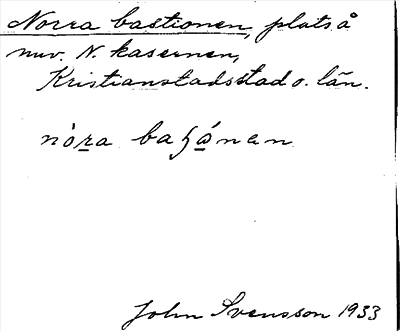 Norra bastionen, plats å
nuv. N. kasernen,
Kristianstads stad o. län.
John Svensson 1933